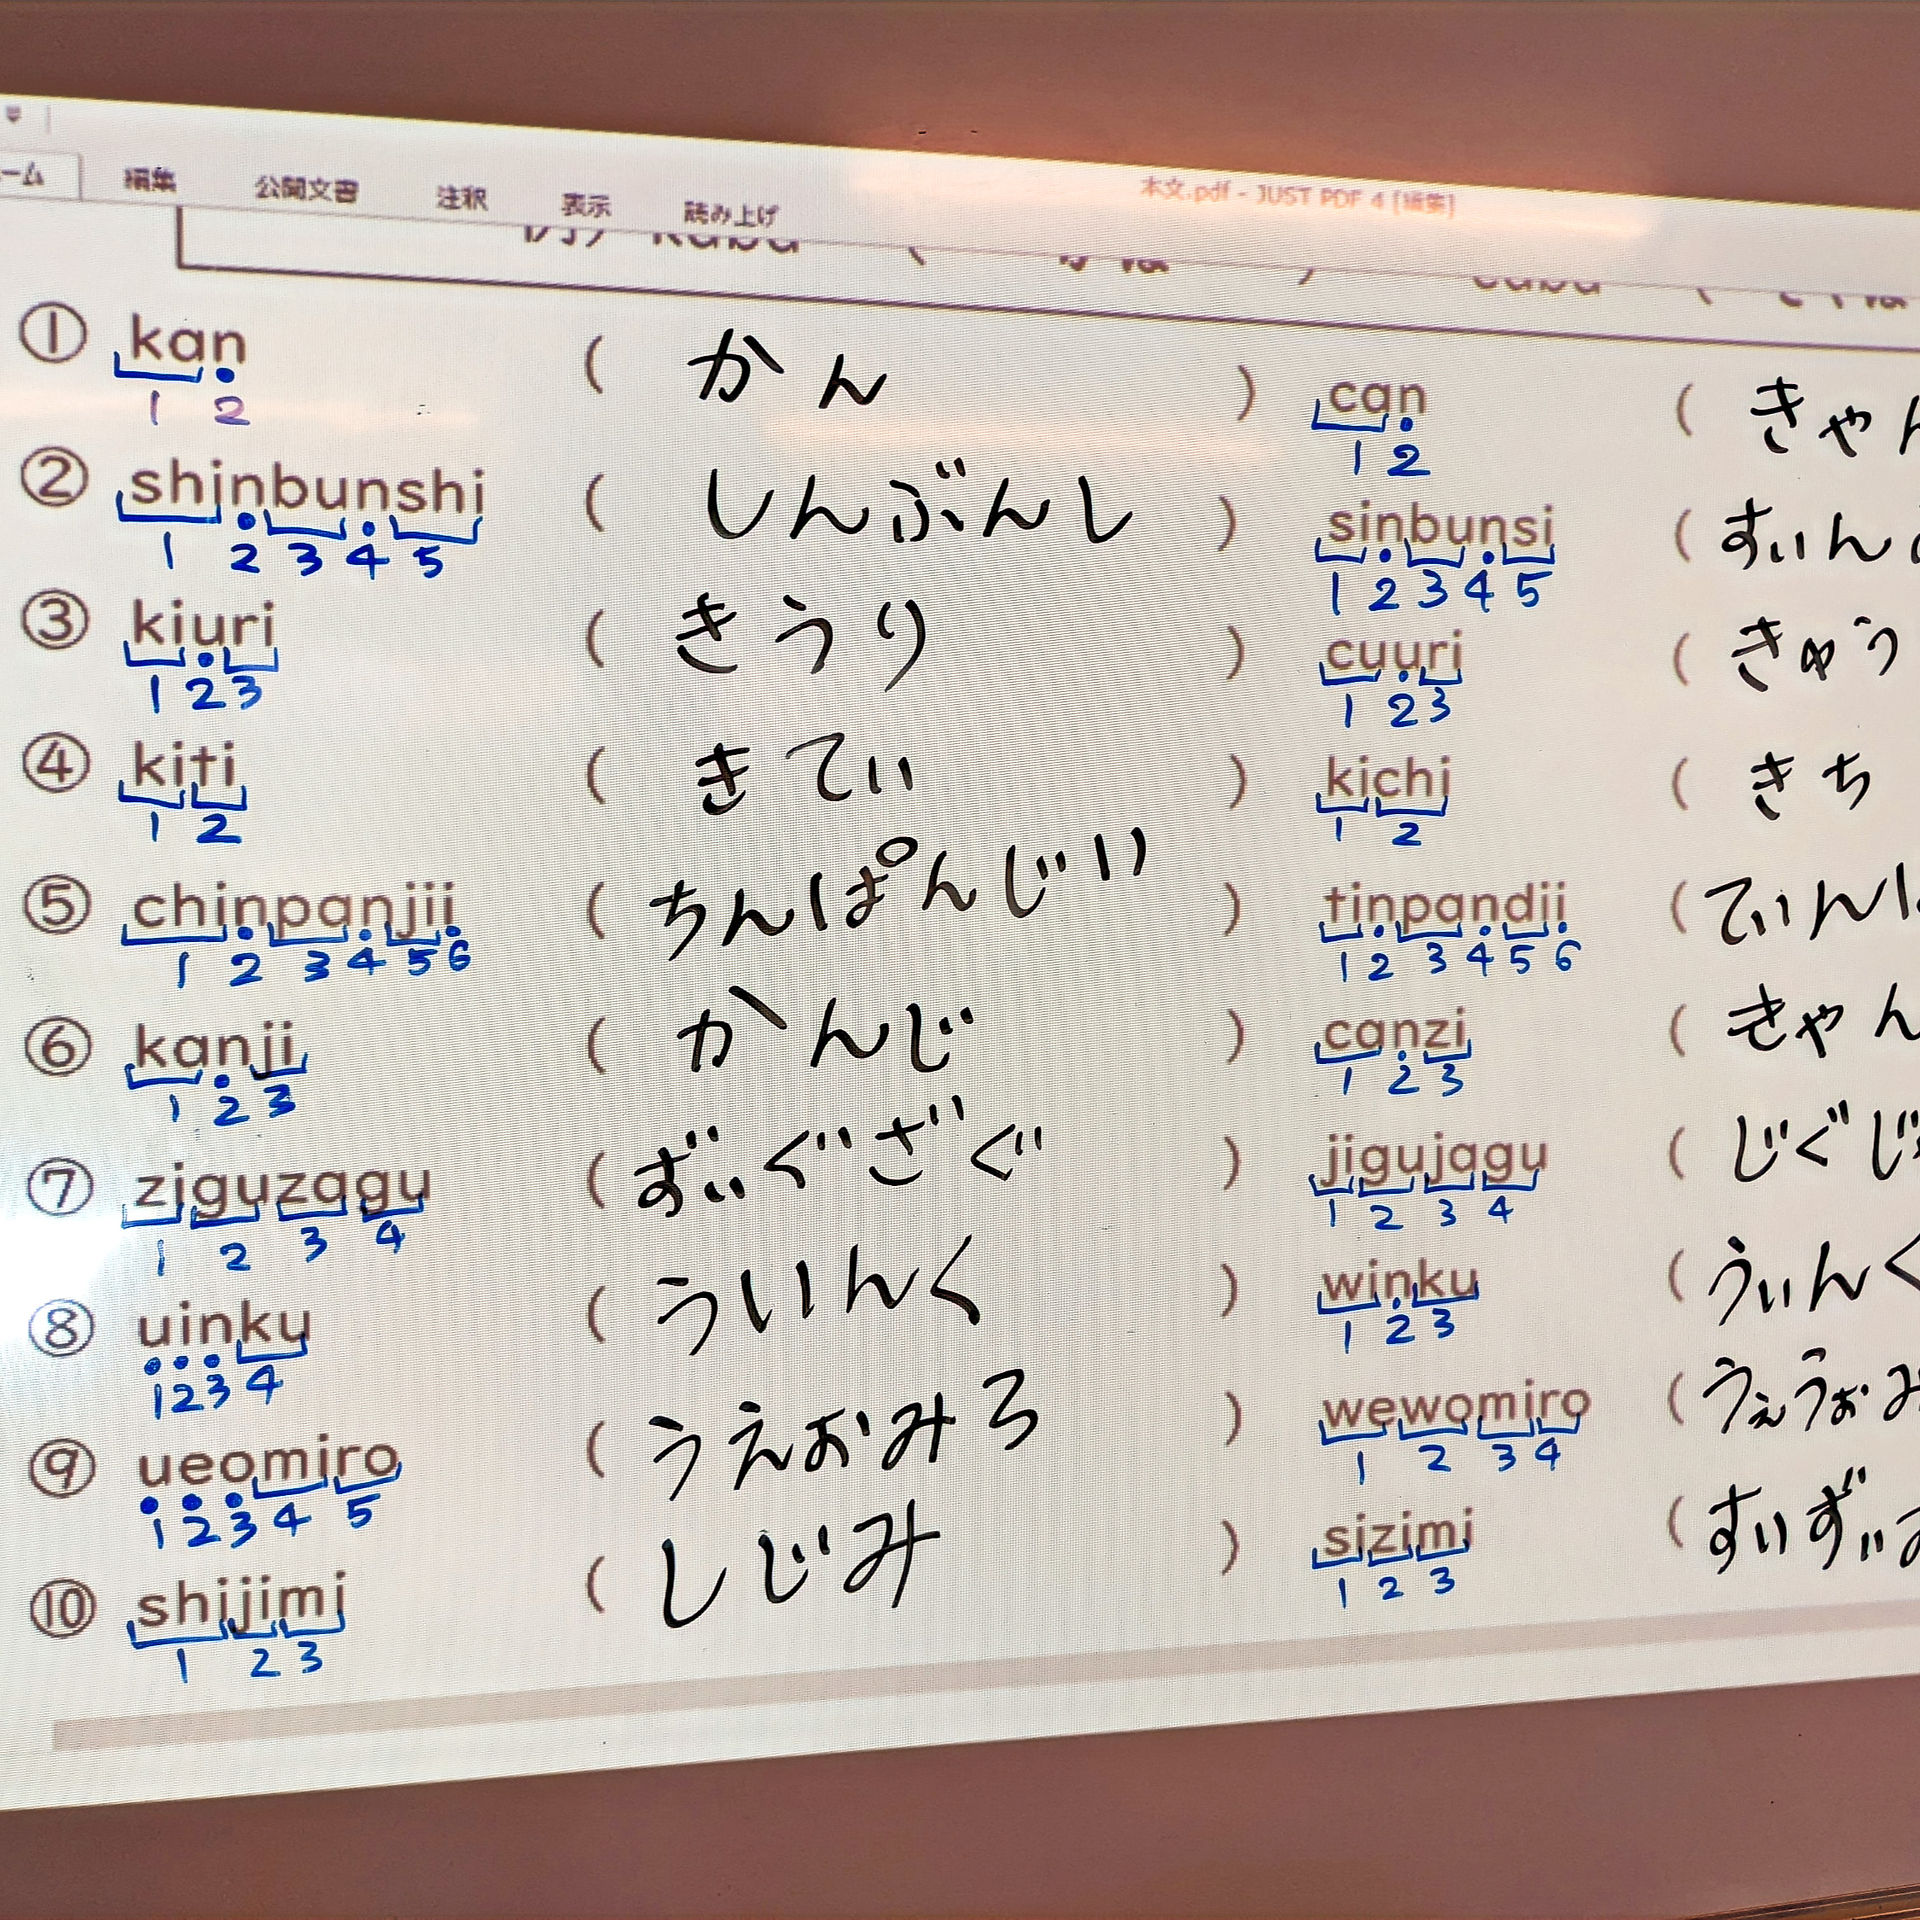 ーム 編集 公開文書 注釈 表示 読み上げ 本文.pdf - JUST PDF 4 [編集]
① kan ( かん ) can ( きゃん
1 2 1 2
② shinbunshi ( しんぶんし ) sinbunsi ( すぃん
1 2 3 4 5 1 2 3 4 5
③ kiuri ( きうり ) cuuri ( きゅう
1 2 3 1 2 3
④ kiti ( きてぃ ) kichi ( きち
1 2 1 2
⑤ chinpanjii ( ちんぱんじい ) tinpandii ( てぃん
1 2 3 4 5 6 1 2 3 4 5 6
⑥ kanji ( かんじ ) canzi ( きゃん
1 2 3 1 2 3
⑦ ziguzagu ( ずぃぐざぐ ) jigujagu ( じぐじ
1 2 3 4 1 2 3 4
⑧ uinku ( ういんく ) winku ( うぃんく
1 2 3 4 1 2 3
⑨ ueomiro ( うえおみろ ) wewomiro ( うぇうぉみ
1 2 3 4 5 1 2 3 4
⑩ shijimi ( しじみ ) sizimi ( すぃずぃ
1 2 3 1 2 3